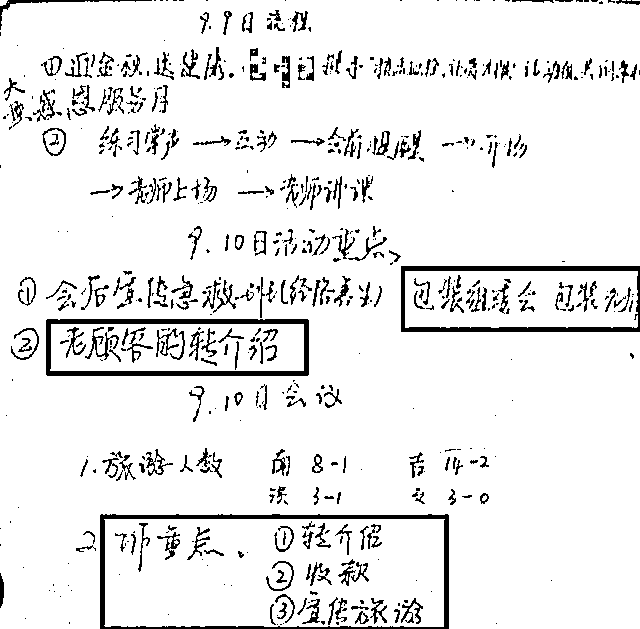 9.9日流程
①迎金秋,送健康.
大型感恩服务月
② 练习掌声→互动→会前提醒→开场
→老师上场→老师讲课
9.10日活动重点
①会后宣传急救
包装组委会 包装老师
②老顾客的转介绍
9.10日会议
1.旅游人数 南 8-1 吉 14-2
3-1 文 3-0
2 重点、①转介绍
②收款
③宣传旅游